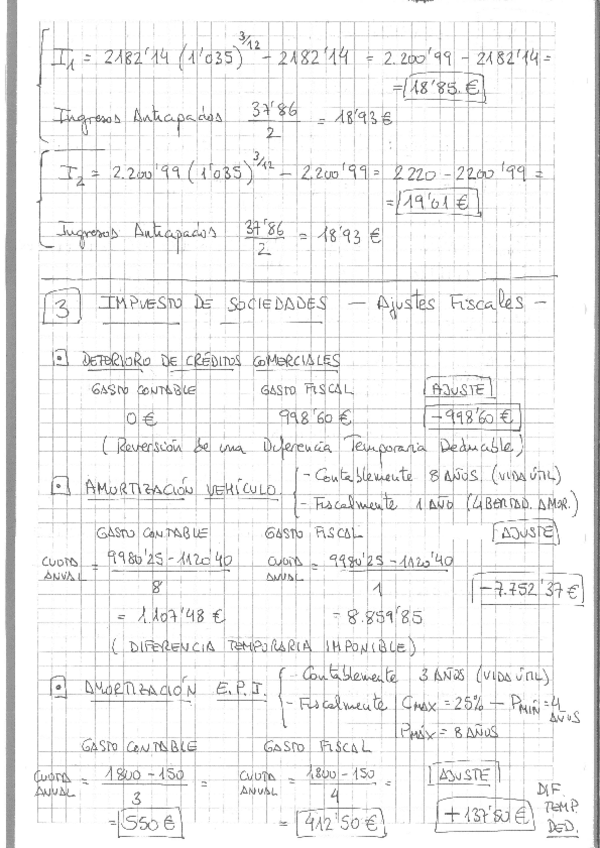 I₁ = 2182'14 (1'035)^3/12 - 2182'14 = 2.200'99 - 2182'14 =
= 18'85 €
Ingresos Anticapados 37'86/2 = 18'93 €
I₂ = 2.200'99 (1'035)^3/12 - 2.200'99 = 2220 - 2200'99 =
= 19'01 €
Ingresos Anticapados 37'86/2 = 18'93 €
3 IMPUESTO DE SOCIEDADES — Ajustes Fiscales -
DETERIORO DE CRÉDITOS COMERCIALES
GASTO CONTABLE GASTO FISCAL AJUSTE
0 € 998'60 € -998'60 €
(Reversión de una Diferencia Temporaria Deducable)
AMORTIZACIÓN VEHÍCULO - Contablemente 8 AÑOS. (VIDA ÚTIL)
- Fiscalmente 1 AÑO (LIBERTAD. AMOR.)
GASTO CONTABLE GASTO FISCAL AJUSTE
CUOTA ANUAL = 9980'25 - 1120'40 / 8 CUOTA ANUAL = 9980'25 - 1120'40 / 1 -7.752'37 €
= 1.107'48 € = 8.859'85
(DIFERENCIA TEMPORARIA IMPONIBLE)
AMORTIZACIÓN E.P.I. - Contablemente 3 AÑOS (VIDA ÚTIL)
- Fiscalmente CMÁX = 25% — PMÍN = 4 AÑOS
PMÁX = 8 AÑOS
GASTO CONTABLE GASTO FISCAL
CUOTA ANUAL = 1800 - 150 / 3 = CUOTA ANUAL = 1800 - 150 / 4 = AJUSTE
= 550 € = 412'50 € +137'50 € DIF. TEMP. DED.